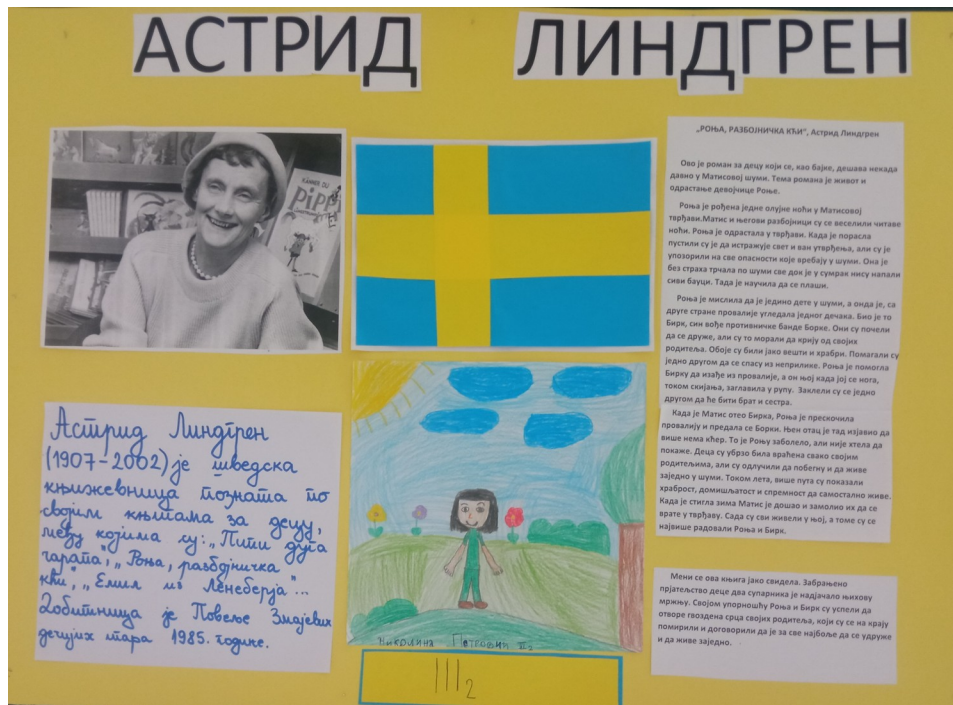 АСТРИД ЛИНДГРЕН
KÄNNER DU
PiPPi
Астрид Линдгрен
(1907-2002) је шведска
књижевница позната по
својим књигама за децу,
међу којима су: „Пипи дуга
чарапа", „Роња, разбојничка
кћи", „Емил из Ленеберја"...
Добитница је Повеље Змајевих
дечјих игара 1985. године.
Николина Петровић II2
III2
„РОЊА, РАЗБОЈНИЧКА КЋИ", Астрид Линдгрен
Ово је роман за децу који се, као бајке, дешава некада
давно у Матисовој шуми. Тема романа је живот и
одрастање девојчице Роње.
Роња је рођена једне олујне ноћи у Матисовој
тврђави.Матис и његови разбојници су се веселили читаве
ноћи. Роња је одрастала у тврђави. Када је порасла
пустили су је да истражује свет и ван утврђења, али су је
упозорили на све опасности које вребају у шуми. Она је
без страха трчала по шуми све док је у сумрак нису напали
сиви бауци. Тада је научила да се плаши.
Роња је мислила да је једино дете у шуми, а онда је, са
друге стране провалије угледала једног дечака. Био је то
Бирк, син вође противничке банде Борке. Они су почели
да се друже, али су то морали да крију од својих
родитеља. Обоје су били јако вешти и храбри. Помагали су
једно другом да се спасу из неприлике. Роња је помогла
Бирку да изађе из провалије, а он њој када јој се нога,
током скијања, заглавила у рупу. Заклели су се једно
другом да ће бити брат и сестра.
Када је Матис отео Бирка, Роња је прескочила
провалију и предала се Борки. Њен отац је тад изјавио да
више нема кћер. То је Роњу заболело, али није хтела да
покаже. Деца су убрзо била враћена свако својим
родитељима, али су одлучили да побегну и да живе
заједно у шуми. Током лета, више пута су показали
храброст, домишљатост и спремност да самостално живе.
Када је стигла зима Матис је дошао и замолио их да се
врате у тврђаву. Сада су сви живели у њој, а томе су се
највише радовали Роња и Бирк.
Мени се ова књига јако свидела. Забрањено
прјатељство деце два супарника је надјачало њихову
мржњу. Својом упорношћу Роња и Бирк су успели да
отворе гвоздена срца својих родитеља, који су се на крају
помирили и договорили да је за све најбоље да се удруже
и да живе заједно.